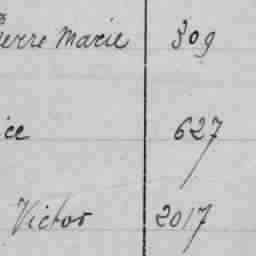 ierre Marie 309
ice 627
Victor 2017